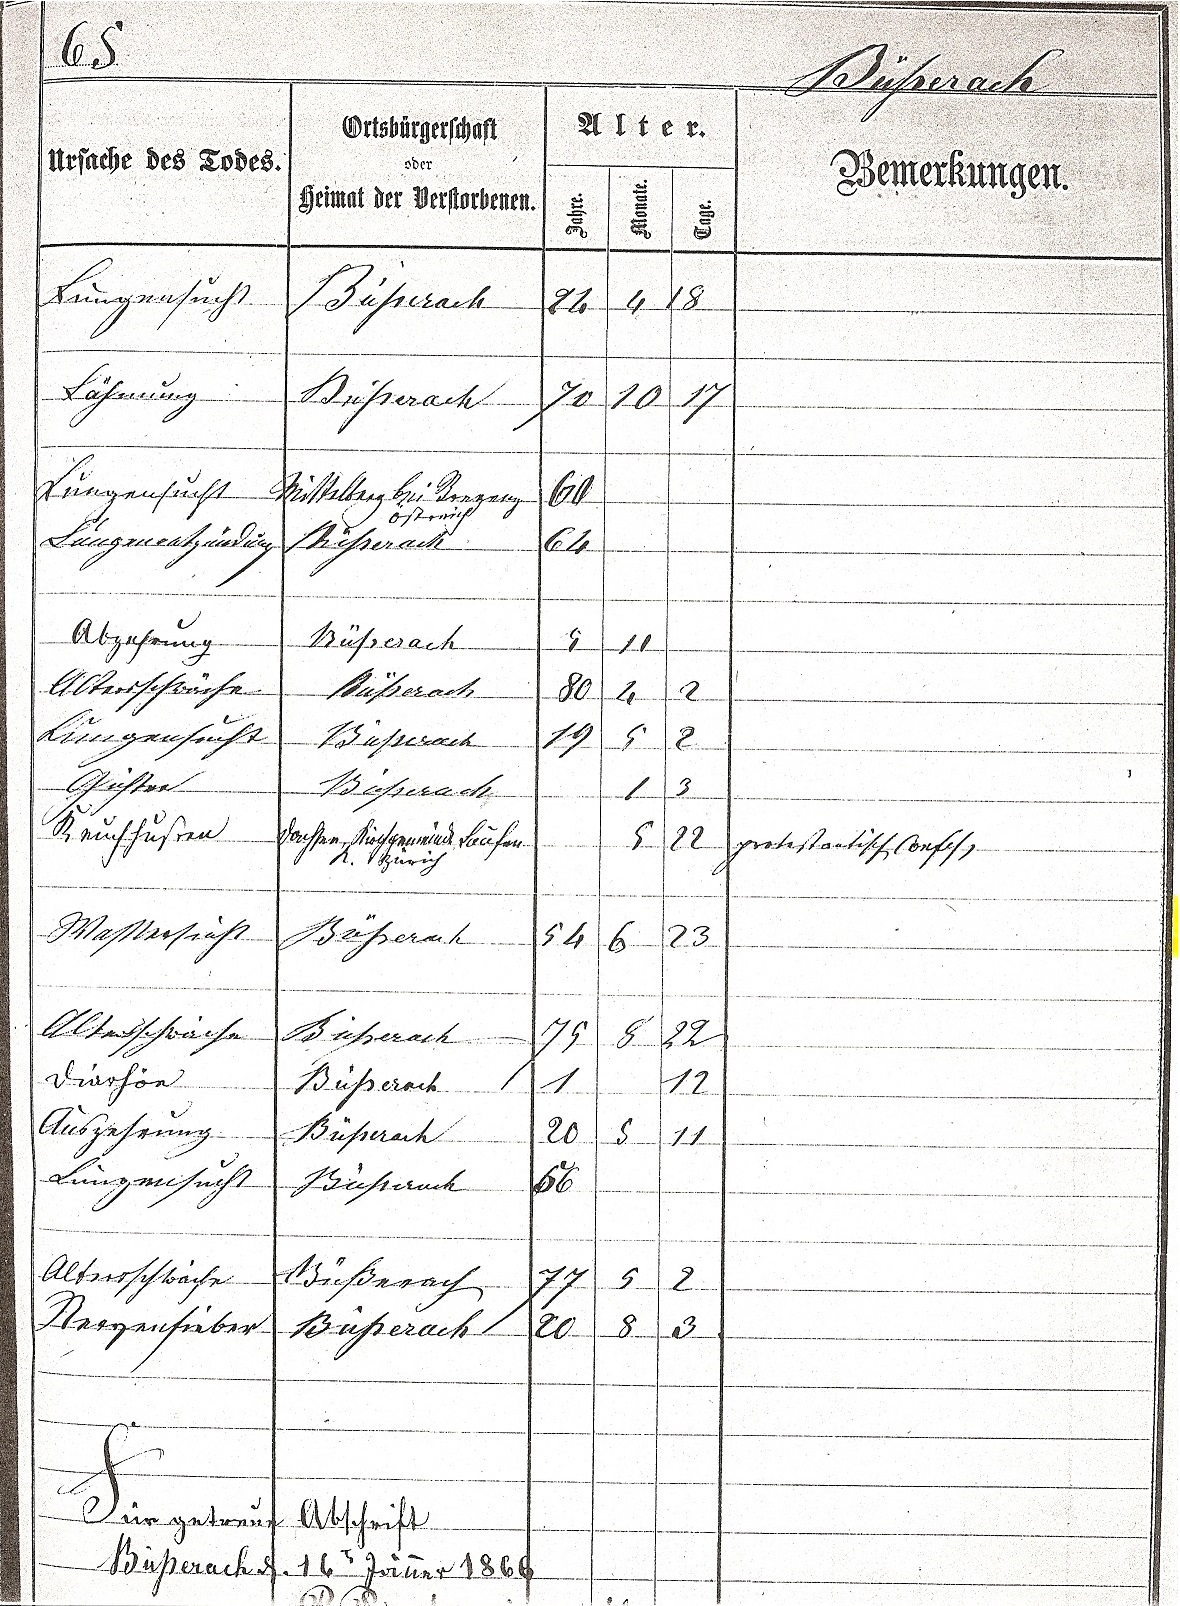 65
Büßerach
Ursache des Todes. Ortsbürgerschaft oder Heimat der Verstorbenen. Alter. Jahre. Monate. Tage. Bemerkungen.
Lungensucht Büßerach 4 18
Lähmung Büßerach 70 10 17
Lungensucht Mittelberg bei Bregenz 60
Östreich
Lungenentzündung Büßerach 64
Abzehrung Büßerach 5 11
Altersschwäche Büßerach 80 4 2
Lungensucht Büßerach 19 5 2
Gichter Büßerach 1 3
Keuchhusten Dachsen, Kirchgemeinde Laufen 5 22 protestantisch Confess,
K. Zürich
Wassersucht Büßerach 54 6 23
Altersschwäche Büßerach 75 8 22
Diarhöe Büßerach 1 12
Auszehrung Büßerach 20 5 11
Lungensucht Büßerach 56
Altersschwäche Büßerach 77 5 2
Nervenfieber Büßerach 20 8 3
Für getreue Abschrift
Büßerach d. 16t Jänner 1866